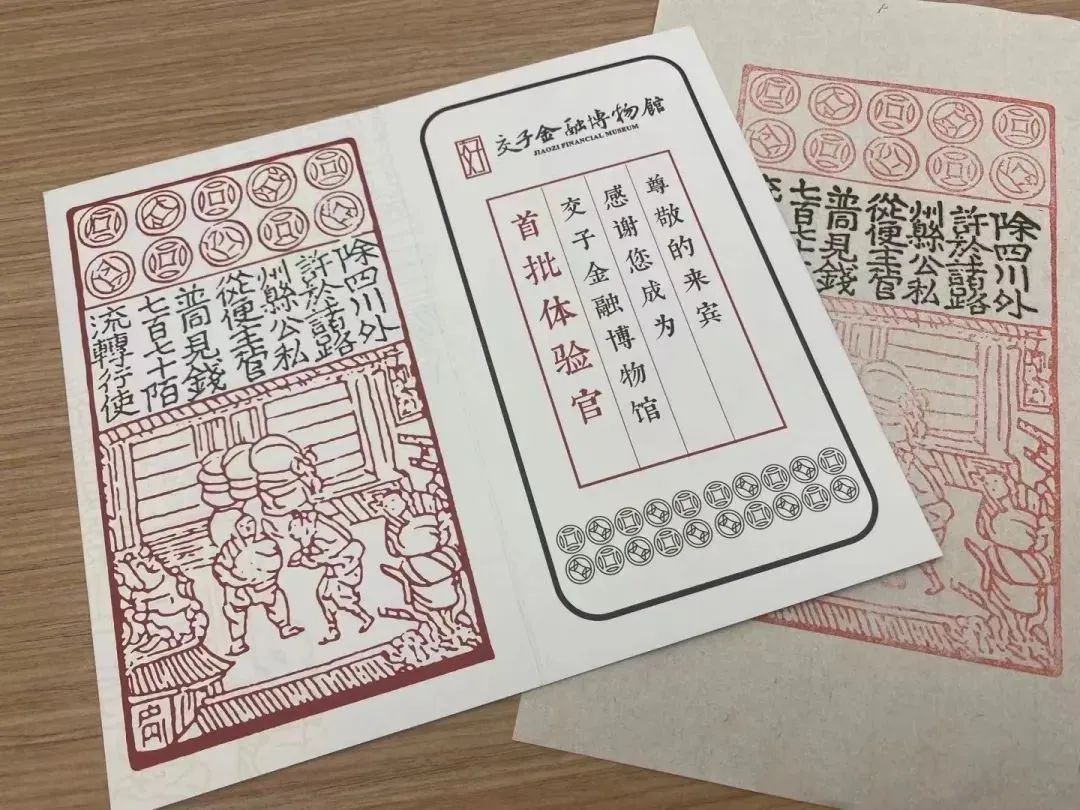 除四川外
許於諸路
州縣公私
從便主管
普同見錢
七百七十陌
流轉行使
交子金融博物館
JIAOZI FINANCIAL MUSEUM
尊敬的来宾
感谢您成为
交子金融博物馆
首批体验官
除四川外
許於諸路
州縣公私
從便主管
普同見錢
七百七